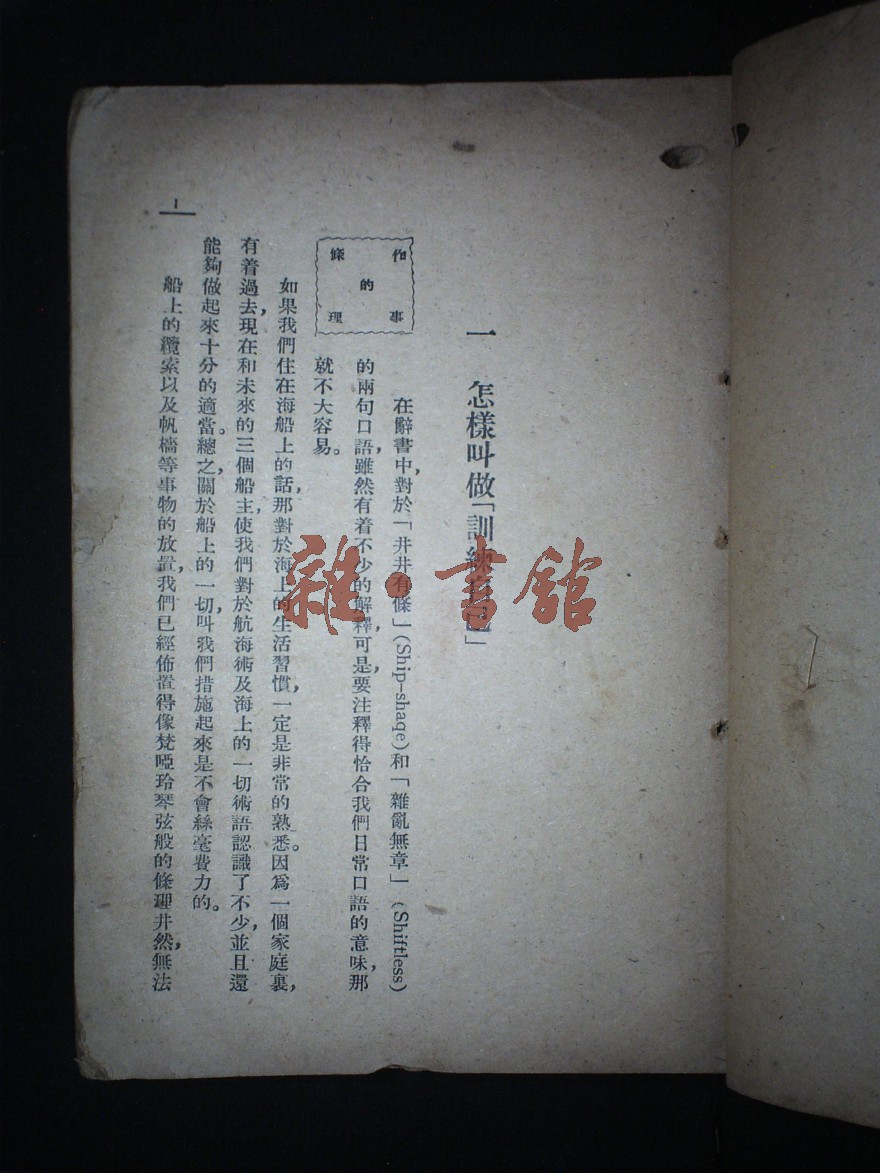 一 怎樣叫做「訓練自己」
作事
的
條理
在辭書中,對於「井井有條」(Ship-shaqe)和「雜亂無章」(Shiftless)
的兩句口語,雖然有着不少的解釋,可是,要注釋得恰合我們日常口語的意味,那
就不大容易。
如果我們住在海船上的話,那對於海上的生活習慣,一定是非常的熟悉。因爲一個家庭裏,
有着過去,現在和未來的三個船主,使我們對於航海術及海上的一切術語認識了不少,並且還
能夠做起來十分的適當。總之,關於船上的一切,叫我們措施起來是不會絲毫費力的。
船上的纜索以及帆檣等事物的放置,我們已經佈置得像梵啞玲琴弦般的條理井然,無法
1
雜·書館